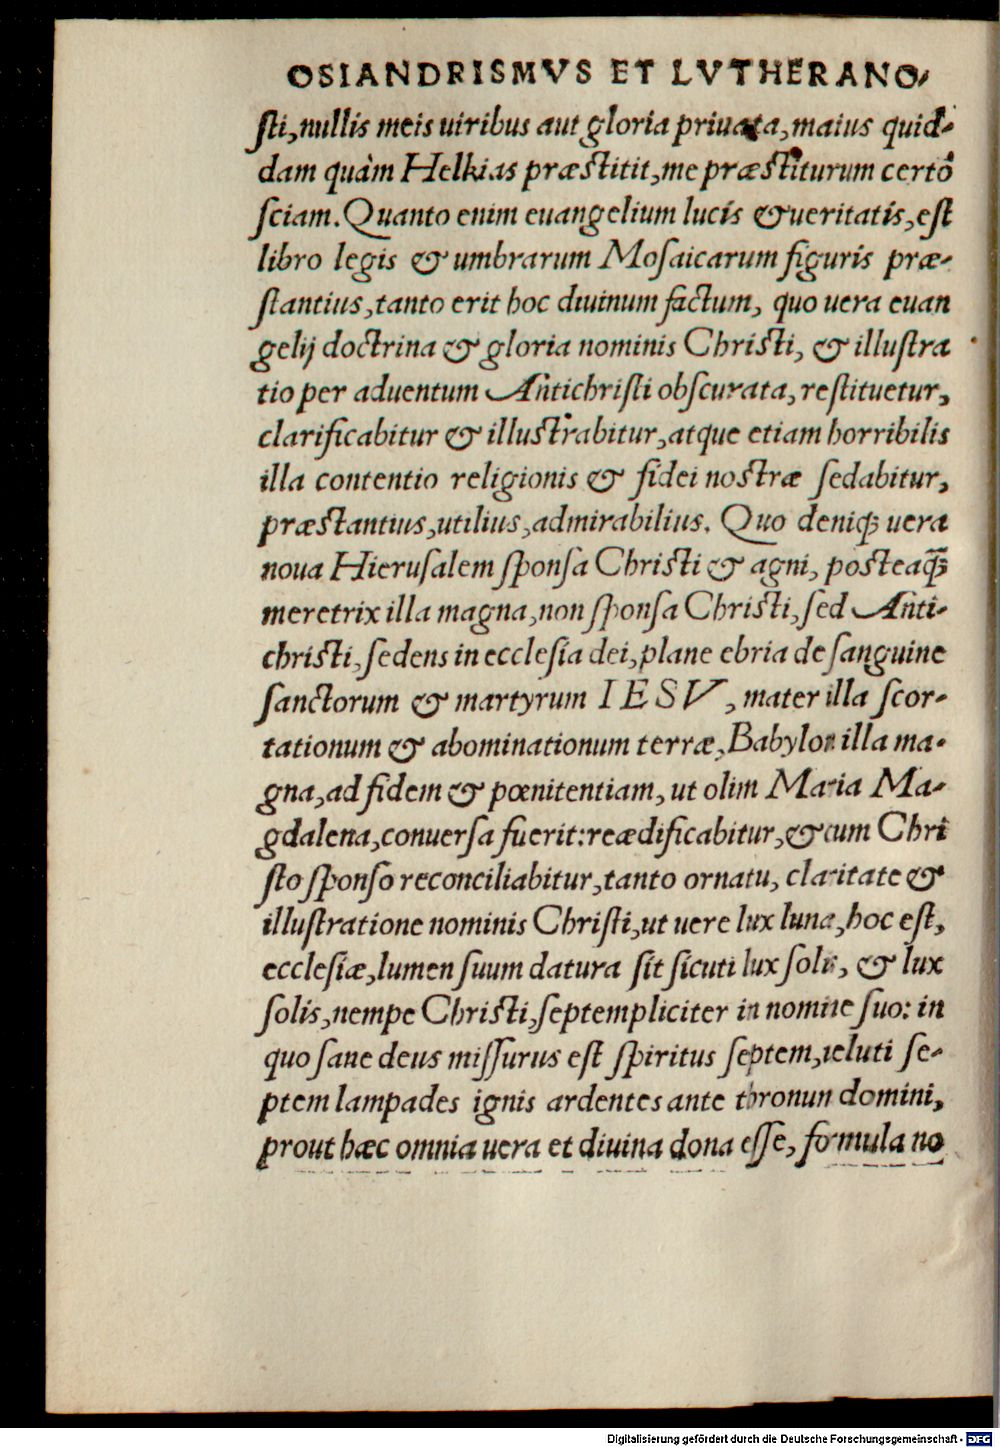 OSIANDRISMVS ET LVTHERANO-
sti, nullis meis uiribus aut gloria priuata, maius quid-
dam quàm Helkias præstitit, me præstiturum certò
sciam. Quanto enim euangelium lucis & ueritatis, est
libro legis & umbrarum Mosaicarum figuris præ-
stantius, tanto erit hoc diuinum factum, quo uera euan
gelij doctrina & gloria nominis Christi, & illustra
tio per aduentum Antichristi obscurata, restituetur,
clarificabitur & illustrabitur, atque etiam horribilis
illa contentio religionis & fidei nostræ sedabitur,
præstantius, utilius, admirabilius. Quo deniqꝫ uera
noua Hierusalem sponsa Christi & agni, posteaq̃ꝫ
meretrix illa magna, non sponsa Christi, sed Anti-
christi, sedens in ecclesia dei, plane ebria de sanguine
sanctorum & martyrum IESV, mater illa scor-
tationum & abominationum terræ, Babylon illa ma-
gna, ad fidem & pœnitentiam, ut olim Maria Ma-
gdalena, conuersa fuerit: reædificabitur, & cum Chri
sto sponso reconciliabitur, tanto ornatu, claritate &
illustratione nominis Christi, ut uere lux luna, hoc est,
ecclesiæ, lumen suum datura sit sicuti lux solis, & lux
solis, nempe Christi, septempliciter in nomine suo: in
quo sane deus missurus est spiritus septem, ueluti se-
ptem lampades ignis ardentes ante thronun domini,
prout hæc omnia uera et diuina dona esse, formula no
Digitalisierung gefördert durch die Deutsche Forschungsgemeinschaft - DFG